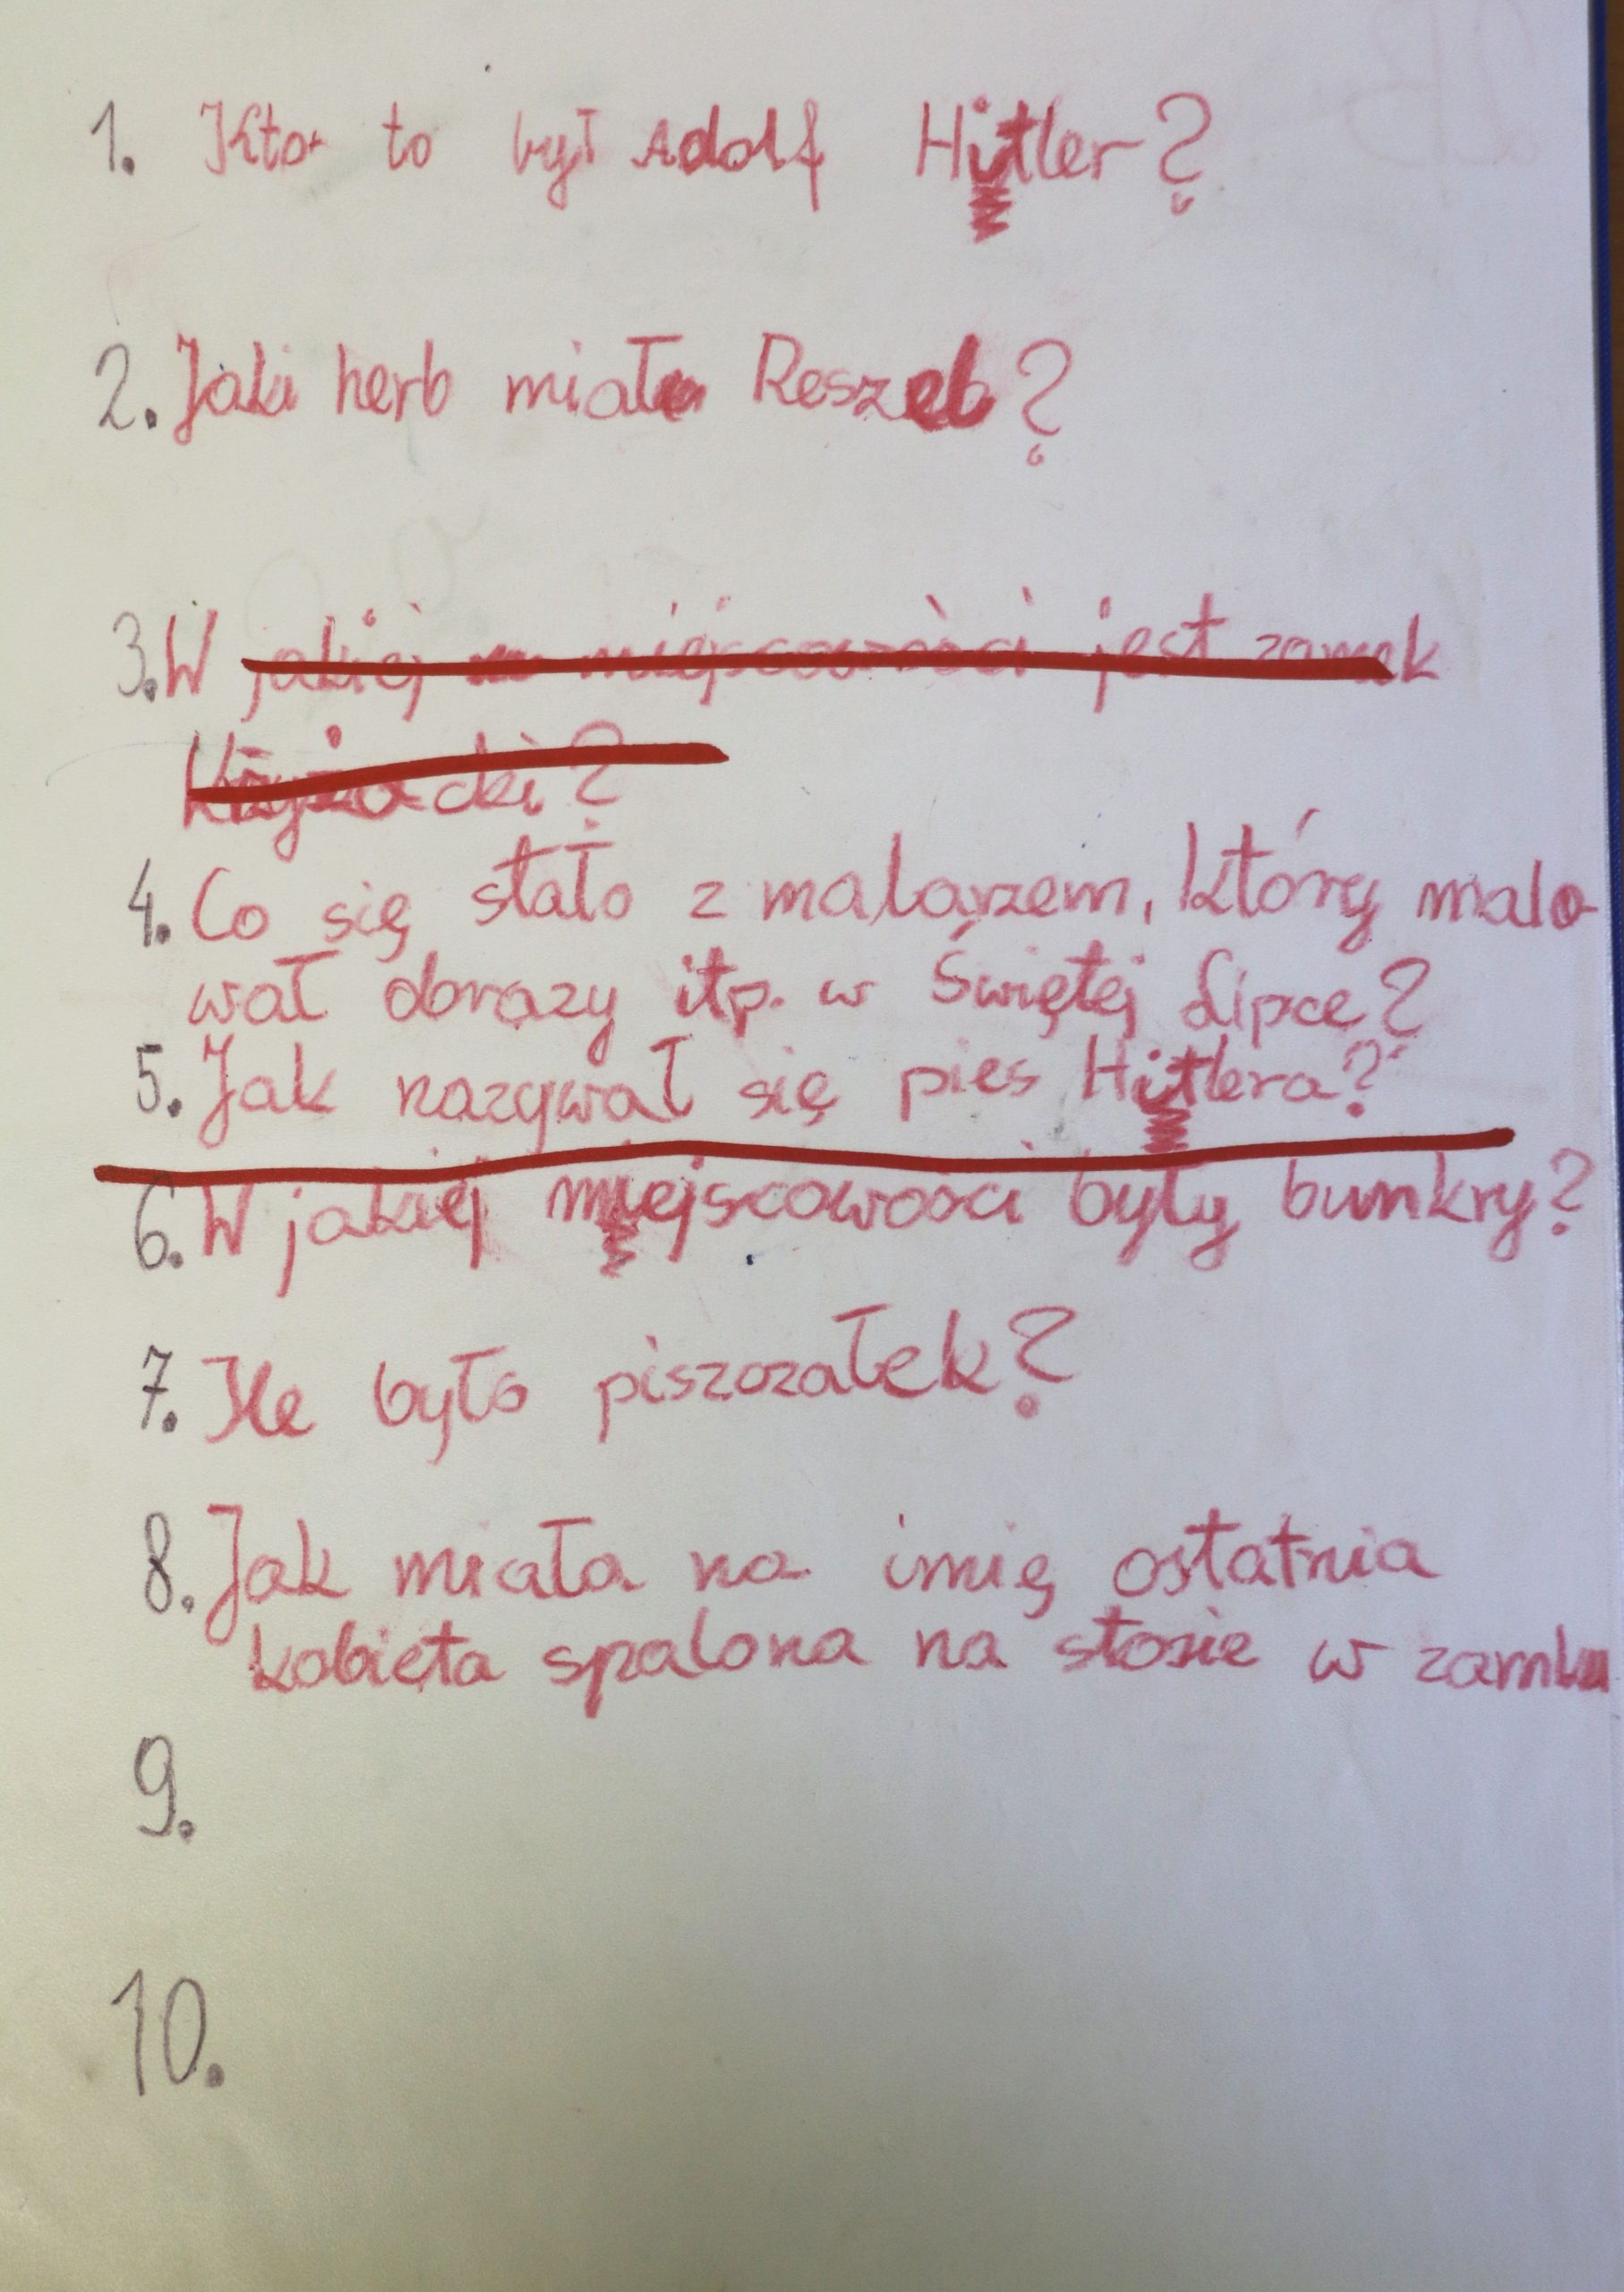 1. Kto to był Adolf Hitler?
2. Jaki herb miał Reszel?
3. W jakiej miejscowości jest zamek
Krzyżacki?
4. Co się stało z malarzem, który malo-
wał obrazy itp. w Świętej Lipce?
5. Jak nazywał się pies Hitlera?
6. W jakiej miejscowosci były bunkry?
7. Ile było piszczałek?
8. Jak miała na imię ostatnia
kobieta spalona na stosie w zamku
9.
10.